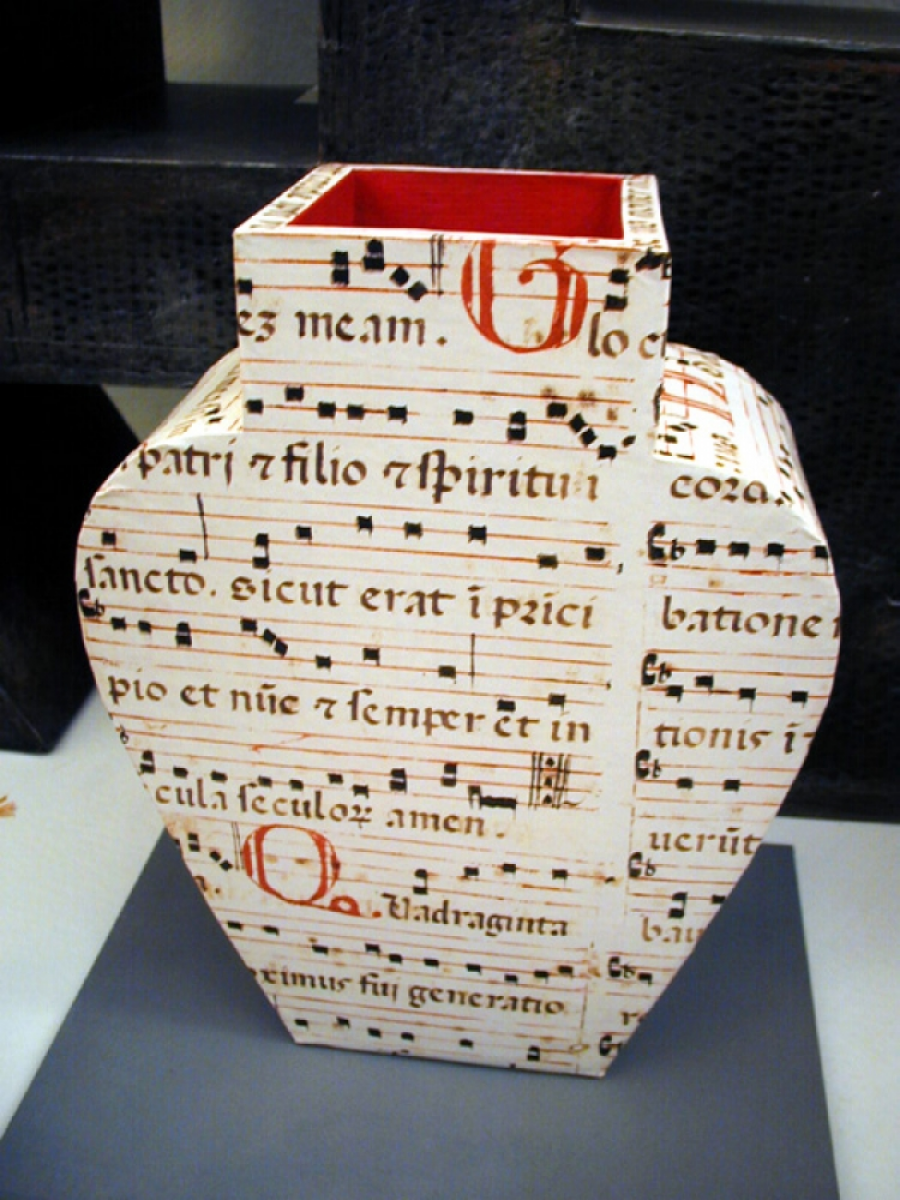 ez meam. Glo
patrj ⁊ filio ⁊ spiritui
sancto. Sicut erat ī prici
pio et nūc ⁊ semper et in
cula seculoꝝ amen.
Quadraginta
ximus fuj generatio
batione
tionis ī
uerūt